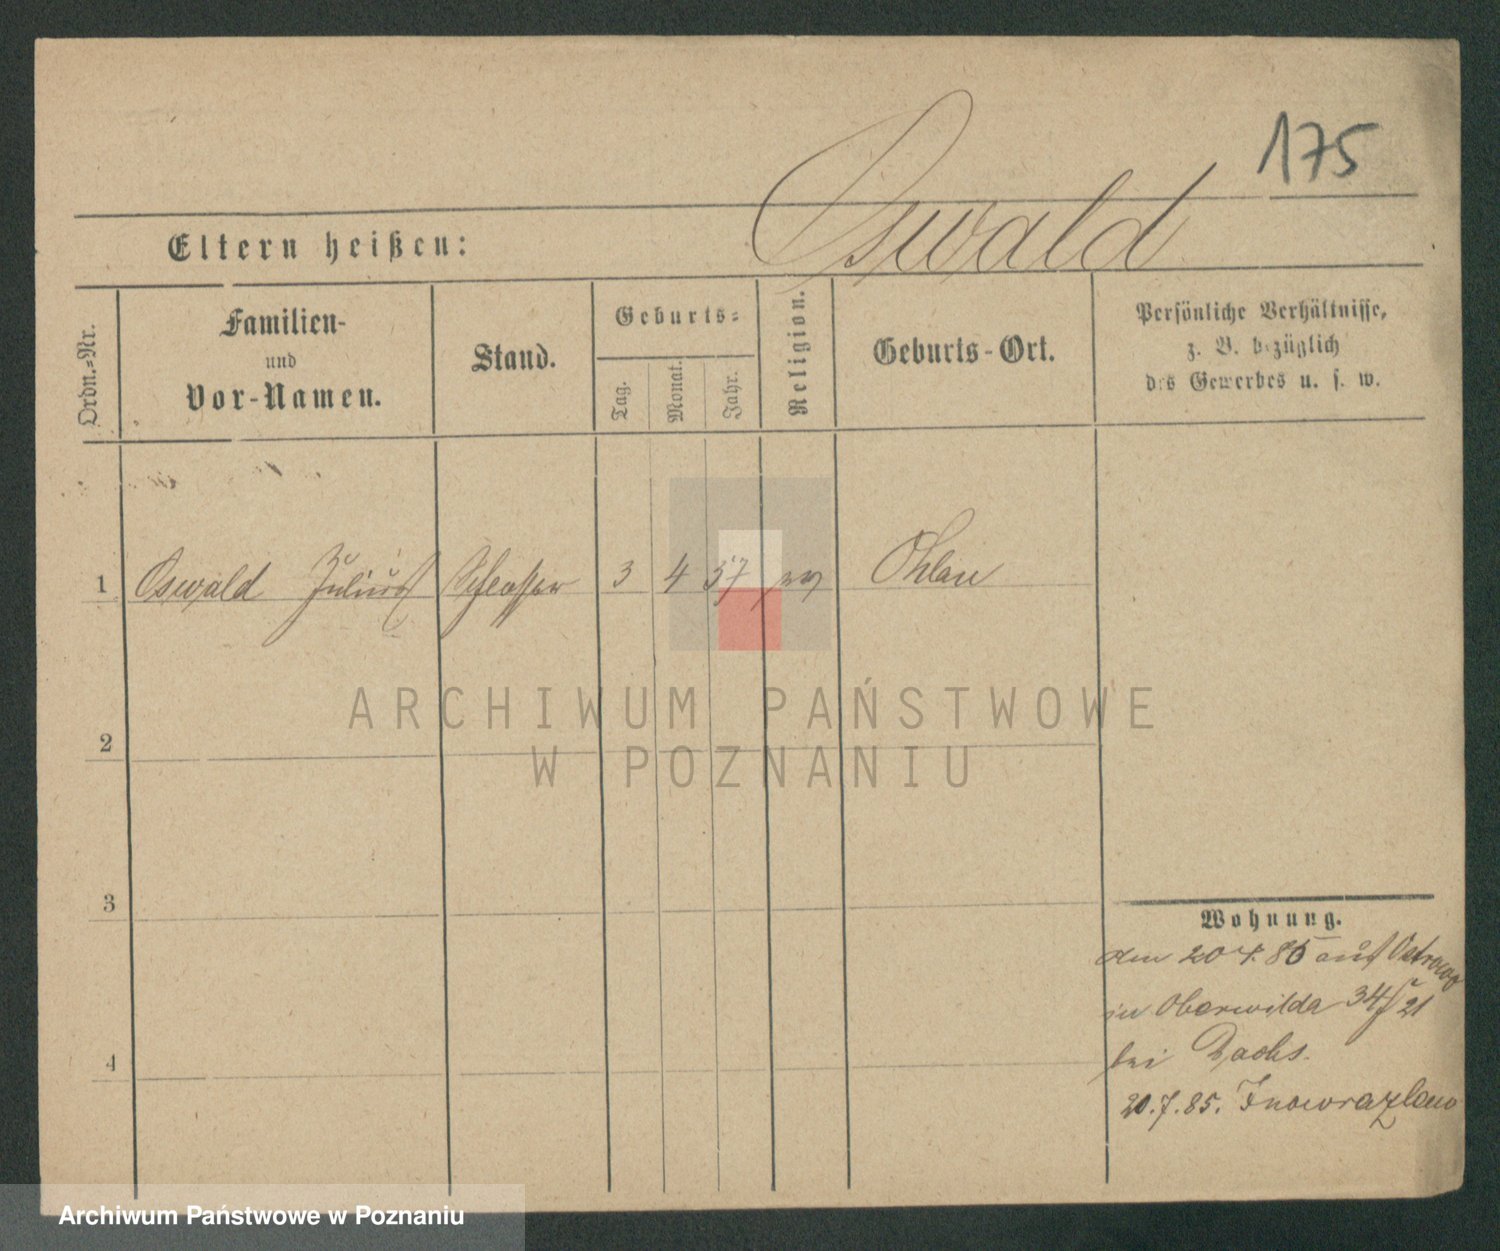 175
Oswald
Eltern heißen:
Ordn.-Nr.
Familien-
und
Vor-Namen.
Stand.
Geburts-
Tag.
Monat.
Jahr.
Religion.
Geburts-Ort.
Persönliche Verhältnisse,
z. B. bezüglich
des Gewerbes u. s. w.
1 Oswald Julius Schlosser 3 4 57 ev Ohlau
ARCHIWUM PAŃSTWOWE
W POZNANIU
2
3
4
Wohnung.
den 20 4. 85 auf Ostrowo
in Oberwilda 34/21
bei Dachs.
20.7.85. Inowrazlaw
Archiwum Państwowe w Poznaniu